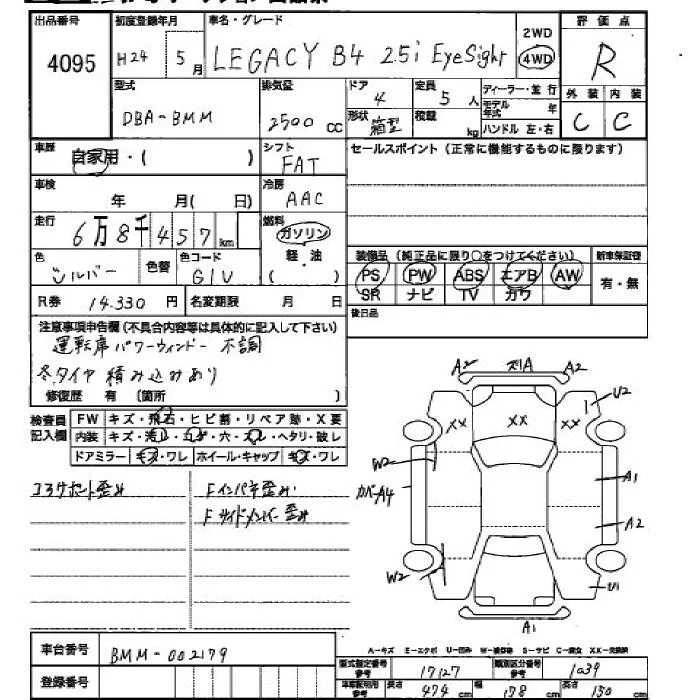 出品番号 初度登録年月 車名・グレード 2WD 評価点
4095 H24 5月 LEGACY B4 2.5i EyeSight 4WD R
型式 排気量 ドア 定員 ディーラー・並行 外装 内装
DBA-BMM 2500 CC 4 5人 モデル年式 年 C C
形状 箱型 積載 kg ハンドル 左・右
車歴 自家用・( ) シフト FAT セールスポイント (正常に機能するものに限ります)
車検 年 月( 日) 冷房 AAC
走行 6万8千457km 燃料 ガソリン
色 シルバー 色替 色コード G1U 軽・油 ( )
装備品 (純正品に限り○をつけてください) 新車保証書
PS PW ABS エアB AW 有・無
SR ナビ TV カワ
R券 14.330円 名変期限 月 日 後日品
注意事項申告欄 (不具合内容等は具体的に記入して下さい)
運転席パワーウィンドー 不調
冬タイヤ 積み込みあり
修復歴 有 〔箇所 〕
検査員記入欄 FW キズ・飛石・ヒビ割・リペア跡・X要
内装 キズ・汚レ・コゲ・穴・スレ・ヘタリ・破レ
ドアミラー キズ・ワレ ホイール・キャップ キズ・ワレ
コアサポート歪み Fインパネ歪み
Fサイドメンバー歪み
A2 ズリA A2
U2
XX XX XX
W2 A1
カバーA4
A2
W2 U1
A1
A-キズ E-エクボ U-凹み W-補修跡 S-サビ C-腐食 XX-交換済
車台番号 BMM-002179
型式指定番号 参考 17127 類別区分番号 参考 1039
登録番号 車庫証明用 参考 長さ 474 cm 幅 178 cm 高さ 150 cm